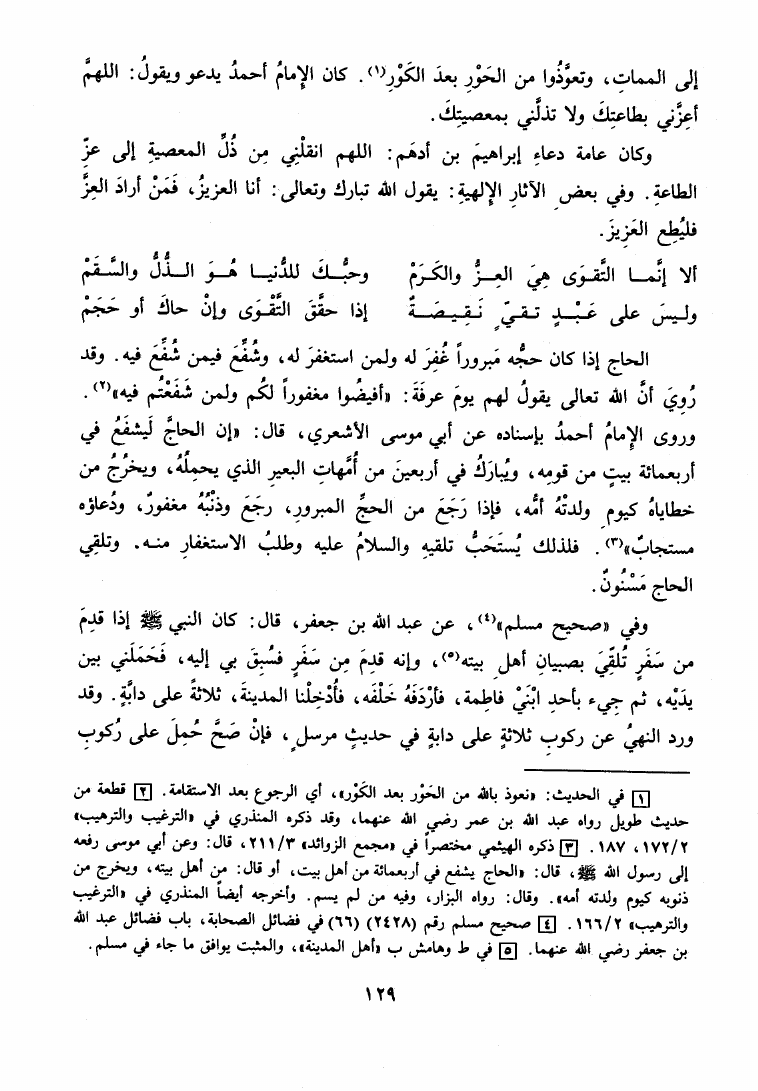 إلى المماتِ، وتعوَّذُوا من الحَوْرِ بعدَ الكَوْرِ(١). كان الإمامُ أحمدُ يدعو ويقولُ: اللهمَّ
أعِزَّني بطاعتِكَ ولا تذلَّني بمعصيتِكَ.
وكان عامة دعاءِ إبراهيمَ بن أدهَم: اللهم انقلْني مِن ذُلِّ المعصيةِ إلى عزِّ
الطاعةِ. وفي بعض الآثارِ الإلهيةِ: يقول الله تبارك وتعالى: أنا العزيزُ، فَمَنْ أرادَ العِزَّ
فليُطِع العَزِيزَ.
ألا إنَّمـا التَّقوَى هِيَ العِـزُّ والكَـرَمْ وحبُّـكَ للدُّنيـا هُـوَ الـذُّلُّ والسَّقَمْ
وليسَ على عَبْـدٍ تـقـيّ نَقِيـصَـةٌ إذا حقَّقَ التَّقْوَى وإنْ حاكَ أو حَجَمْ
الحاج إذا كان حجُّه مَبروراً غُفِرَ له ولمن استغفرَ له، وشُفِّعَ فيمن شُفِّعَ فيه. وقد
رُوِيَ أنَّ الله تعالى يقولُ لهم يومَ عرفَةَ: «أفيضُوا مغفوراً لكُم ولمن شَفَعْتُم فيه»(٢).
وروى الإمامُ أحمدُ بإسناده عن أبي موسى الأشعري، قال: «إن الحاجَّ لَيشفَعُ في
أربعمائة بيتٍ من قومِه، ويُبارَكُ في أربعينَ من أُمَّهاتِ البعيرِ الذي يحمِلُهُ، ويخرُجُ من
خطاياهُ كيومِ ولدتْهُ أمُّه، فإذا رَجَعَ من الحجِّ المبرورِ، رجَعَ وذنْبُهُ مغفورٌ، ودُعاؤه
مستجابٌ»(٣). فلذلك يُستَحَبُّ تلقيهِ والسلامُ عليه وطلبُ الاستغفارِ منـه. وتلقِي
الحاج مَسْنُونٌ.
وفي «صحيح مسلم»(٤)، عن عبد الله بن جعفر، قال: كان النبي ﷺ إذا قدِمَ
من سَفَرٍ تُلقِّيَ بصبيانِ أهلِ بيته(٥)، وإنه قدِمَ مِن سَفَرٍ فسُبِقَ بي إليه، فَحَمَلَني بين
يدَيْه، ثم جِيء بأحدِ ابْنَيْ فاطِمة، فأرْدَفَهُ خَلْفَه، فأُدْخِلْنا المدينةَ، ثلاثةً على دابَّةٍ. وقد
ورد النهيُ عن ركوبِ ثلاثةٍ على دابةٍ في حديثٍ مرسلٍ، فإنْ صَحَّ حُمِلَ على رُكوبِ
١ في الحديث: «نعوذ بالله من الحَوْر بعد الكَوْر»، أي الرجوع بعد الاستقامة. ٢ قطعة من
حديث طويل رواه عبد الله بن عمر رضي الله عنهما، وقد ذكره المنذري في «الترغيب والترهيب»
٢/١٧٢، ١٨٧. ٣ ذكره الهيثمي مختصراً في «مجمع الزوائد» ٣/٢١١، قال: وعن أبي موسى رفعه
إلى رسول الله ﷺ، قال: «الحاج يشفع في أربعمائة من أهل بيت، أو قال: من أهل بيته، ويخرج من
ذنوبه كيوم ولدته أمه». وقال: رواه البزار، وفيه من لم يسم. وأخرجه أيضاً المنذري في «الترغيب
والترهيب» ٢/١٦٦. ٤ صحيح مسلم رقم (٢٤٢٨) (٦٦) في فضائل الصحابة، باب فضائل عبد الله
بن جعفر رضي الله عنهما. ٥ في ط وهامش ب «أهل المدينة»، والمثبت يوافق ما جاء في مسلم.
١٢٩